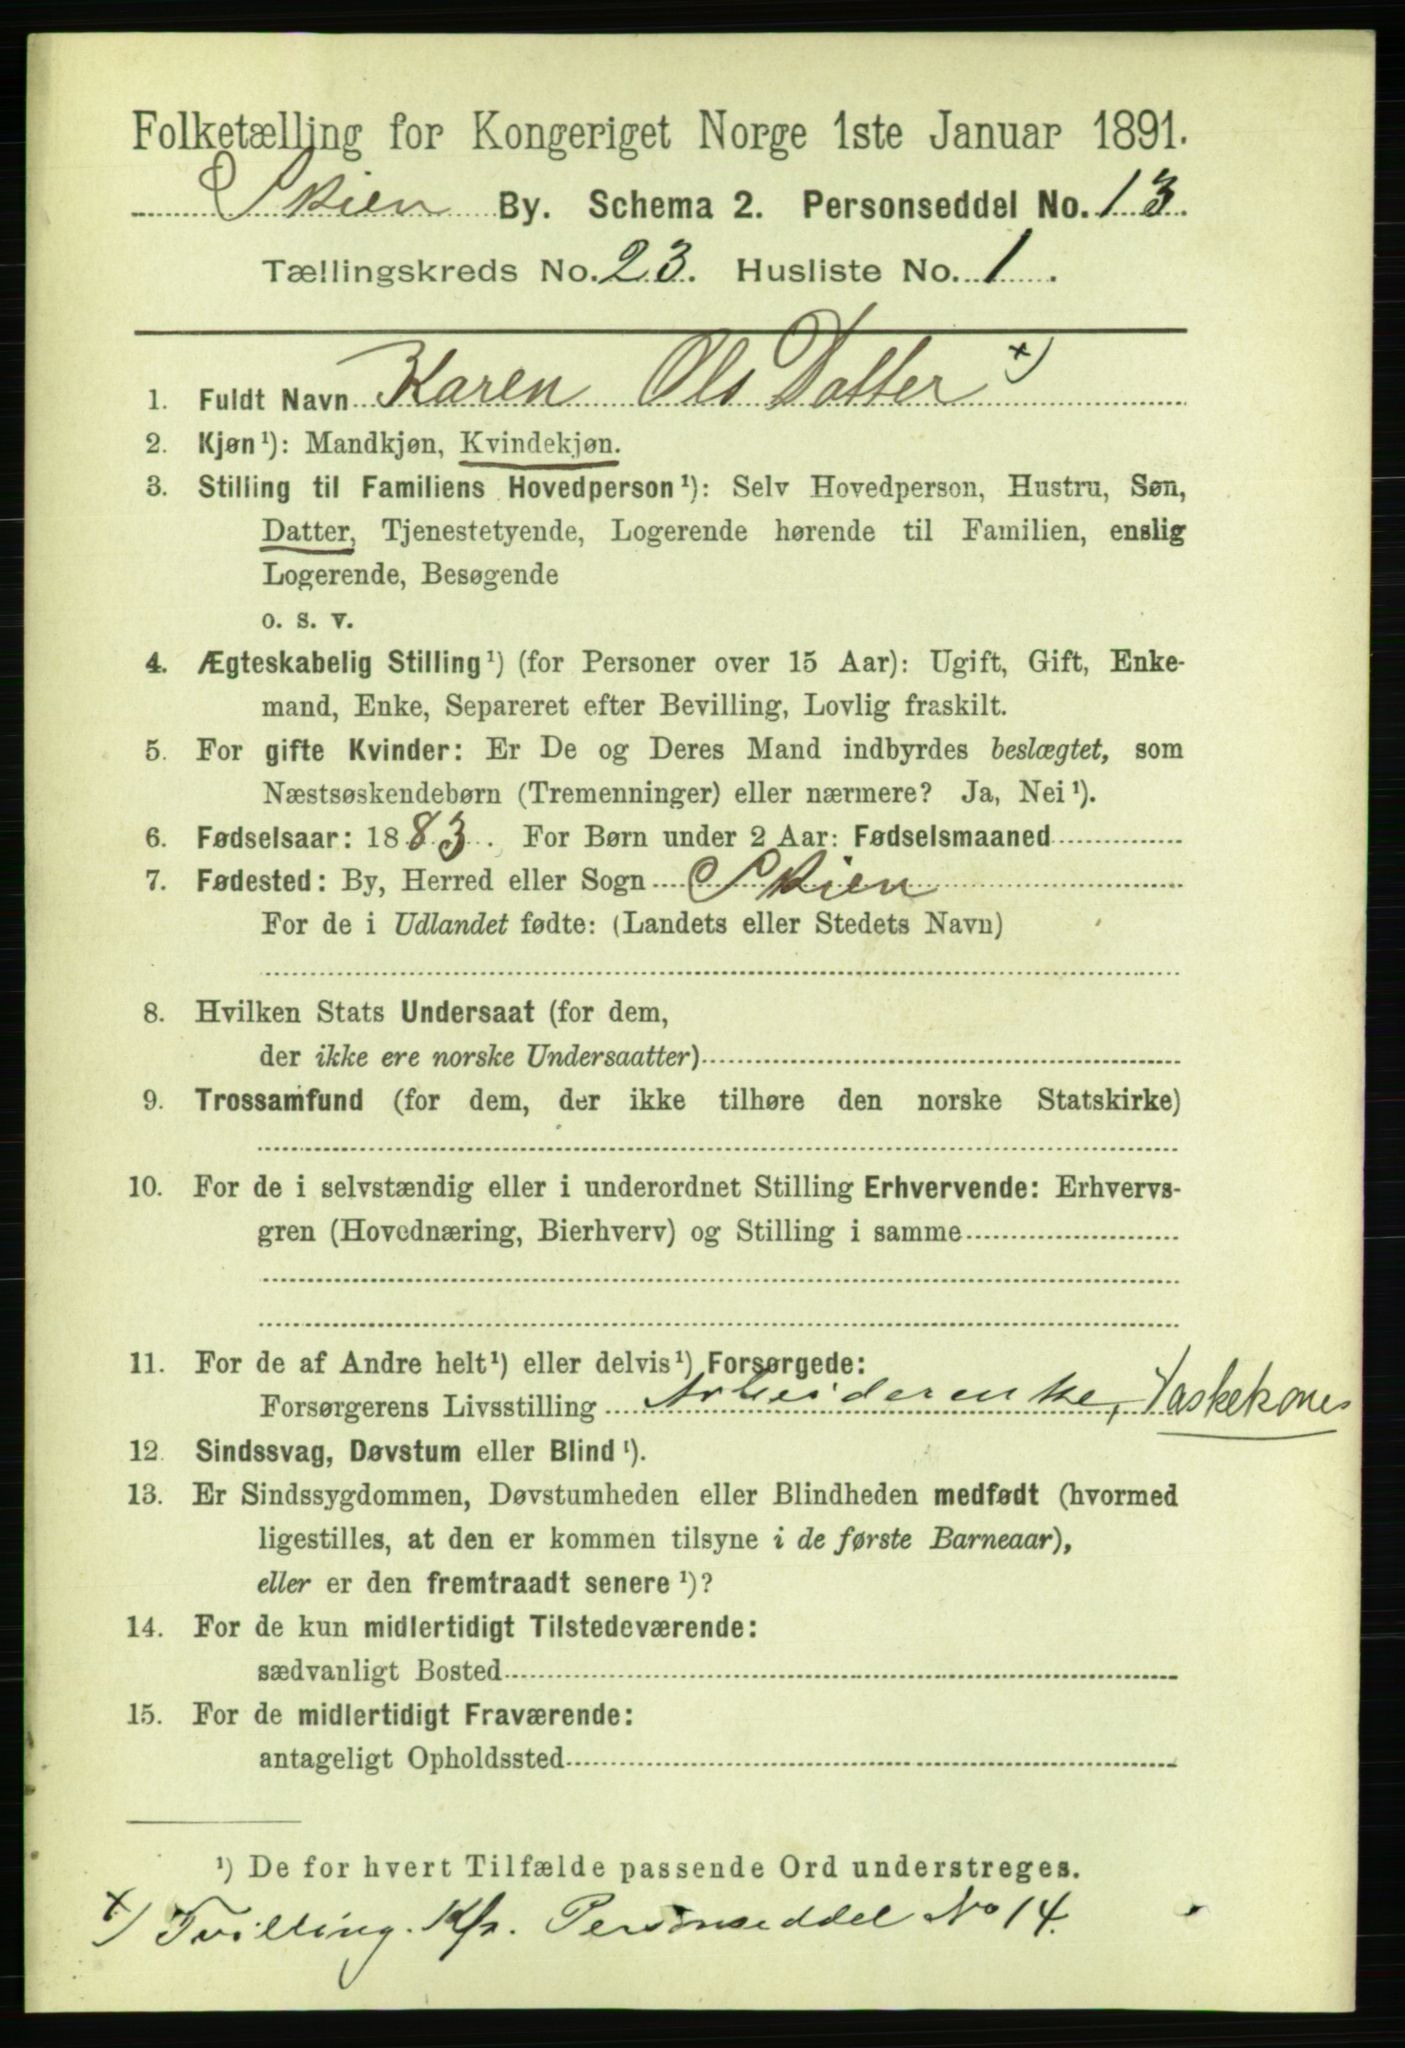 Folketælling for Kongeriget Norge 1ste Januar 1891.
Skien By. Schema 2. Personseddel No. 13.
Tællingskreds No. 23. Husliste No. 1.
1. Fuldt Navn Karen Ols Datter x)
2. Kjøn¹): Mandkjøn, Kvindekjøn.
3. Stilling til Familiens Hovedperson¹): Selv Hovedperson, Hustru, Søn,
Datter, Tjenestetyende, Logerende hørende til Familien, enslig
Logerende, Besøgende
o. s. v.
4. Ægteskabelig Stilling¹) (for Personer over 15 Aar): Ugift, Gift, Enke-
mand, Enke, Separeret efter Bevilling, Lovlig fraskilt.
5. For gifte Kvinder: Er De og Deres Mand indbyrdes beslægtet, som
Næstsøskendebørn (Tremenninger) eller nærmere? Ja, Nei¹).
6. Fødselsaar: 1883. For Børn under 2 Aar: Fødselsmaaned
7. Fødested: By, Herred eller Sogn Skien
For de i Udlandet fødte: (Landets eller Stedets Navn)
8. Hvilken Stats Undersaat (for dem,
der ikke ere norske Undersaatter)
9. Trossamfund (for dem, der ikke tilhøre den norske Statskirke)
10. For de i selvstændig eller i underordnet Stilling Erhvervende: Erhvervs-
gren (Hovednæring, Bierhverv) og Stilling i samme
11. For de af Andre helt¹) eller delvis¹) Forsørgede:
Forsørgerens Livsstilling Arbeiderenke, Vaskekones
12. Sindssvag, Døvstum eller Blind¹).
13. Er Sindssygdommen, Døvstumheden eller Blindheden medfødt (hvormed
ligestilles, at den er kommen tilsyne i de første Barneaar),
eller er den fremtraadt senere¹)?
14. For de kun midlertidigt Tilstedeværende:
sædvanligt Bosted
15. For de midlertidigt Fraværende:
antageligt Opholdssted
¹) De for hvert Tilfælde passende Ord understreges.
x) Tvilling. Kfr. Personseddel No 14.